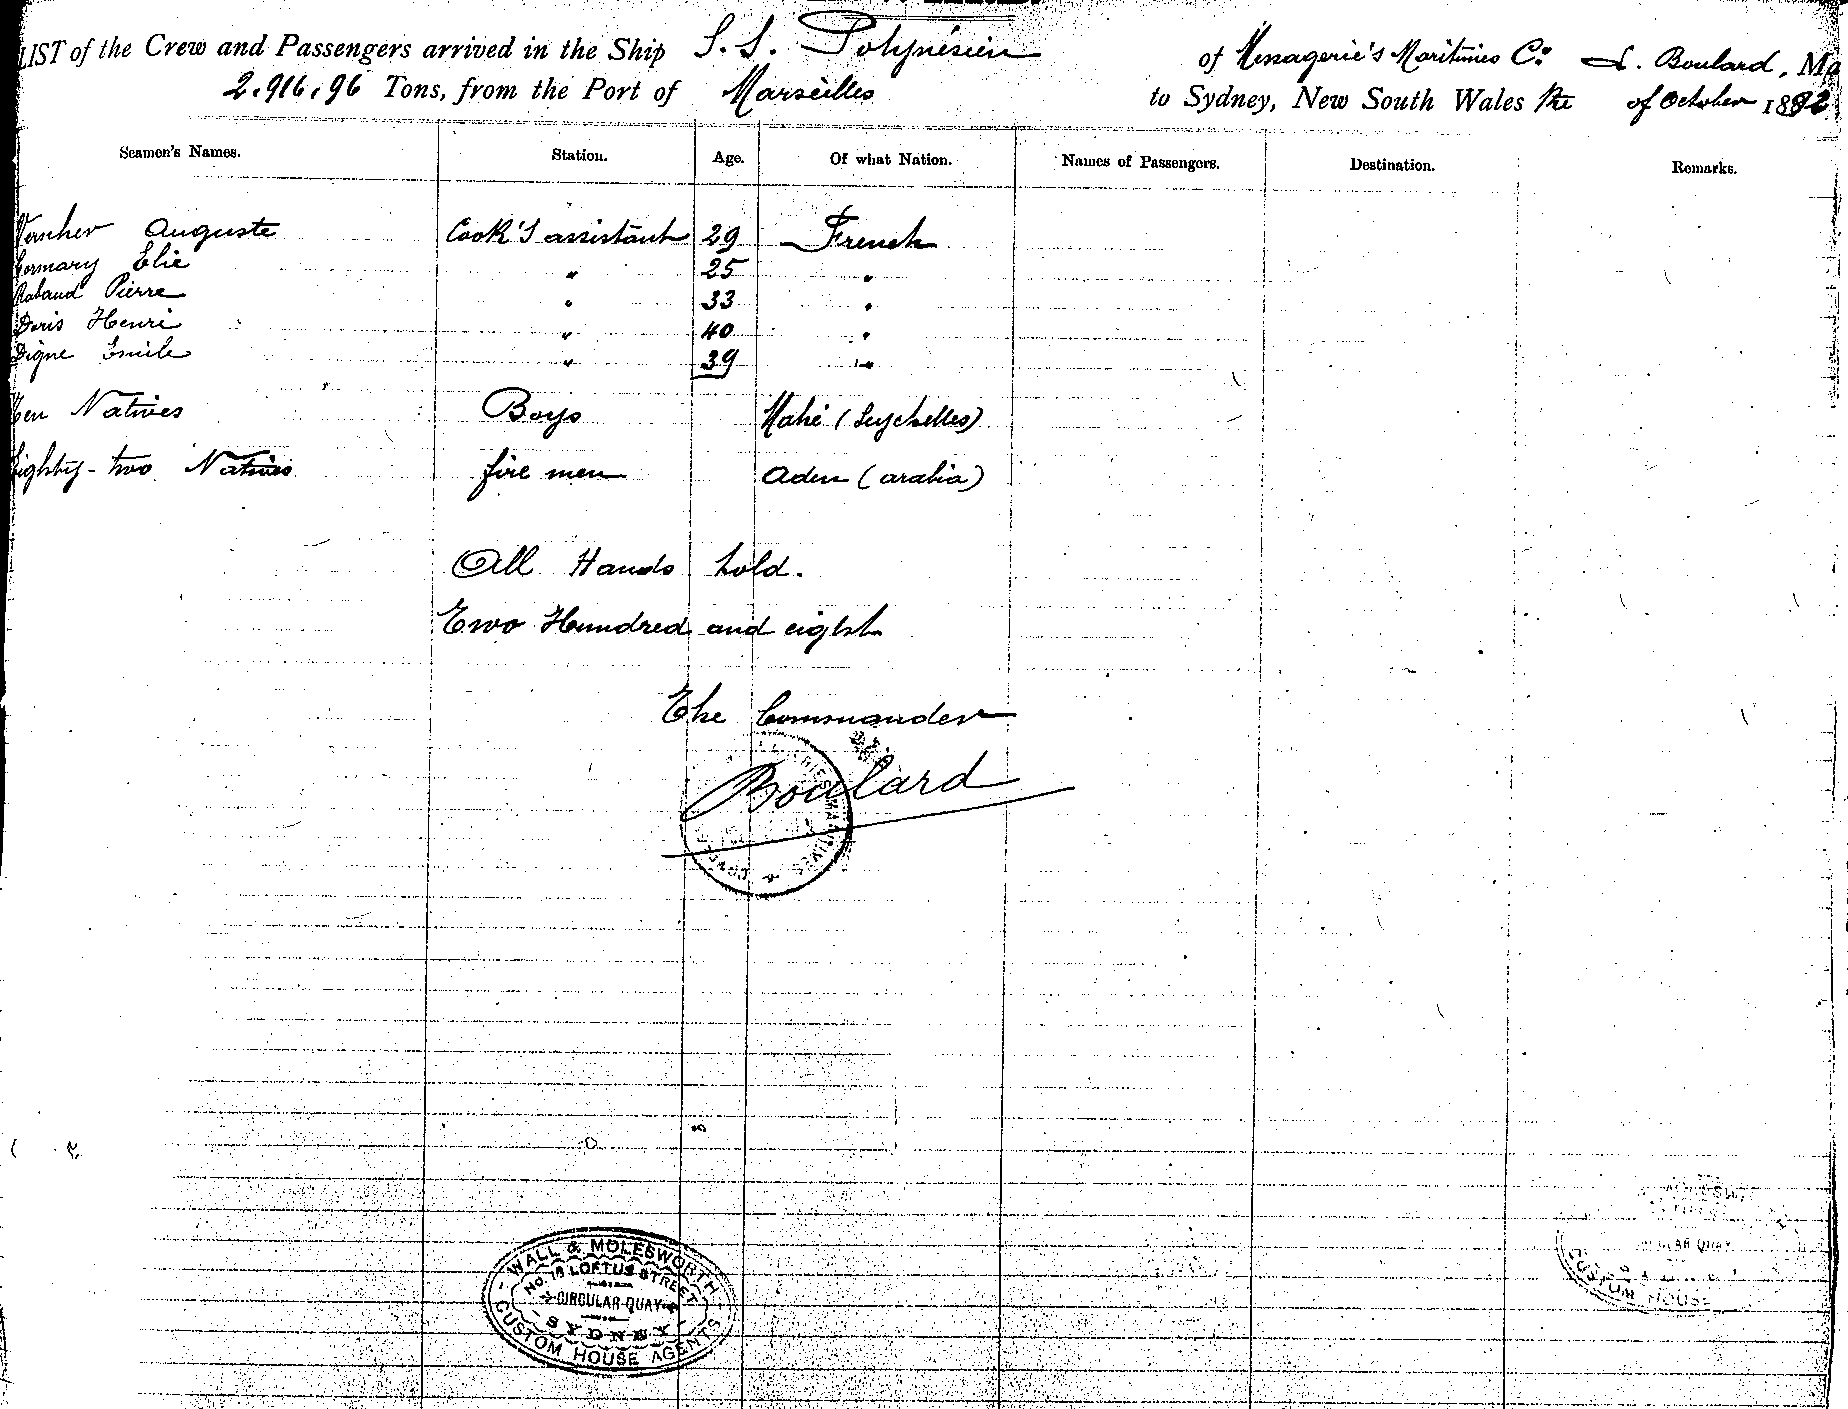 LIST of the Crew and Passengers arrived in the Ship S. S. Polynésien of Messagerie's Maritimes Co. L. Boulard, Ma
2.916,96 Tons, from the Port of Marseilles to Sydney, New South Wales the of October 1892
Seamen's Names. Station. Age. Of what Nation. Names of Passengers. Destination. Remarks.
Auguste Cook's assistant 29 French
Elie " 25 "
Rabaud Pierre " 33 "
Doris Henri " 40 "
Digne Emile " 39 "
Ten Natives Boys Mahé (Seychelles)
Eighty-two Natives fire men Aden (arabia)
All Hands told.
Two Hundred and eight
The Commander
Boulard
WALL & MOLESWORTH
No. 18 LOFTUS STREET
CIRCULAR QUAY
SYDNEY
CUSTOM HOUSE AGENTS
QUAY
CUSTOM HOUSE